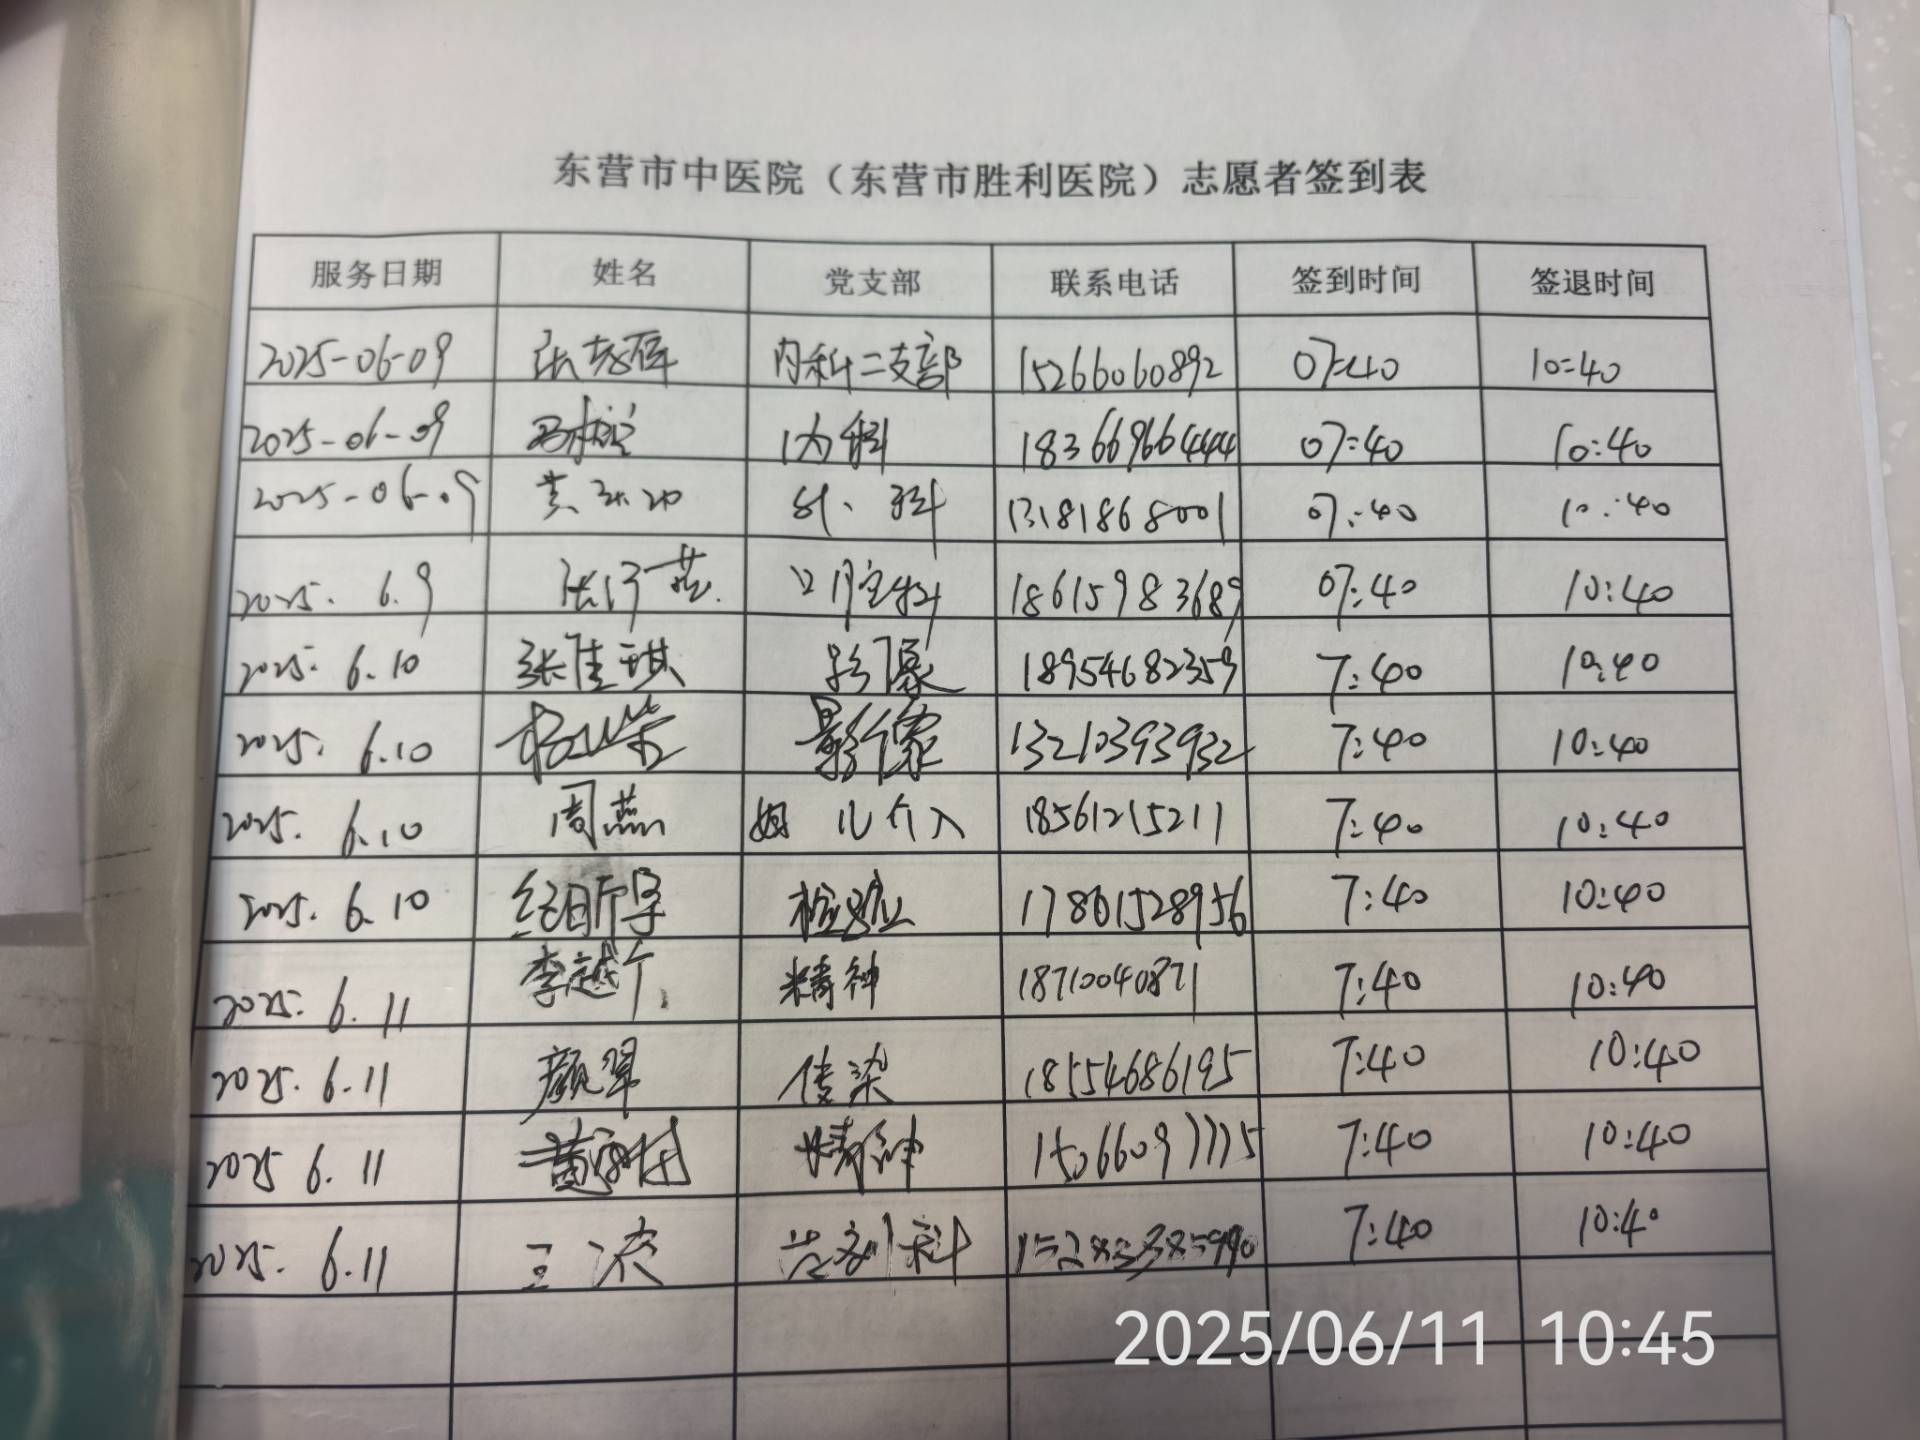 东营市中医院（东营市胜利医院）志愿者签到表
服务日期 姓名 党支部 联系电话 签到时间 签退时间
2025-06-09 内科二支部 15266060892 07:40 10:40
2025-06-09 内科 18366966444 07:40 10:40
2025-06-09 外科 13181868001 07:40 10:40
2025. 6.9 口腔科 18615983689 07:40 10:40
2025. 6.10 张佳琪 影像 18954682359 7:40 10:40
2025. 6.10 影像 13210393932 7:40 10:40
2025. 6.10 周燕 妇儿介入 18561215211 7:40 10:40
2025. 6.10 检验 17861528956 7:40 10:40
2025. 6.11 李越 精神 18710040871 7:40 10:40
2025. 6.11 颜翠 传染 18554686195 7:40 10:40
2025 6.11 精神 7:40 10:40
2025. 6.11 王 科 7:40 10:40
2025/06/11 10:45